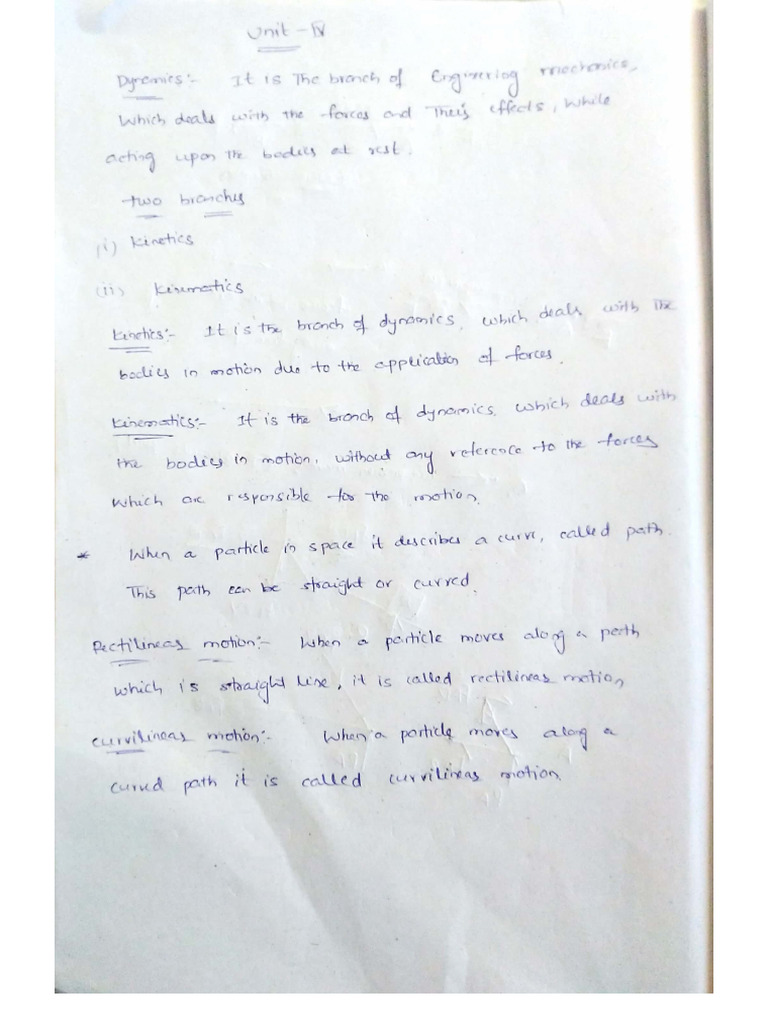 Unit - IV
Dynamics:- It is The branch of Engineering mechanics,
which deals with the forces and Their effects, while
acting upon the bodies at rest.
two branches
(i) Kinetics
(ii) Kinematics
Kinetics:- It is the branch of dynamics, which deals with the
bodies in motion due to the application of forces.
Kinematics:- It is the branch of dynamics, which deals with
the bodies in motion, without any reference to the forces
which are responsible for the motion.
* When a particle in space it describes a curve, called path.
This path can be straight or curved.
Rectilinear motion:- When a particle moves along a path
which is straight line, it is called rectilinear motion
curvilinear motion:- When a particle moves along a
curved path it is called curvilinear motion.